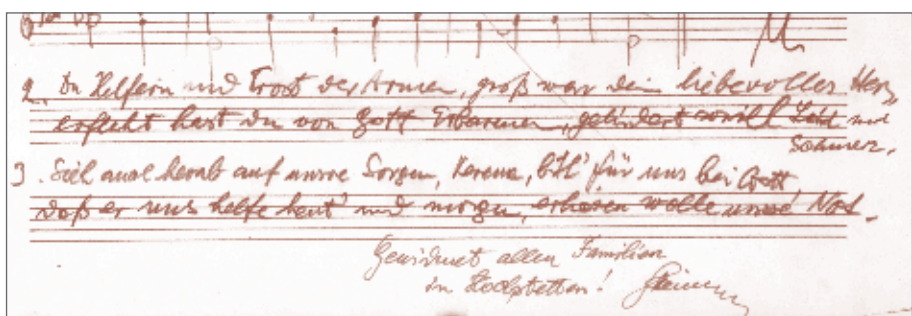 2. Du Helferin und Trost der Armen, groß war dein liebevolles Herz,
erfleht hast du von Gott Erbarmen, gelindert soviel Leid und
Schmerz.
3. Sieh auch herab auf unsre Sorgen, Verena, bitt' für uns bei Gott,
daß er uns helfe heut' und morgen, erhören wolle unsre Not.
Gewidmet allen Familien
in